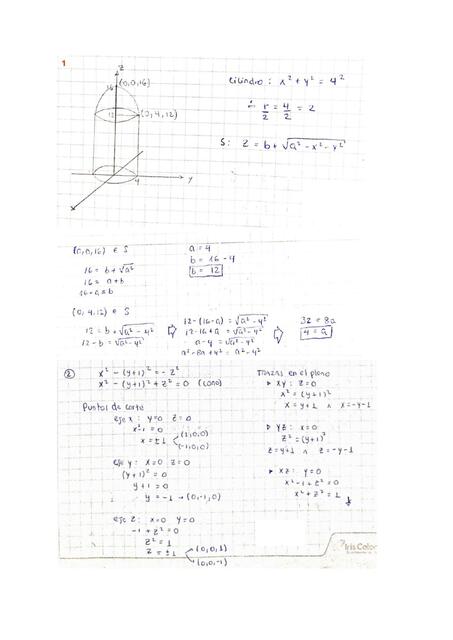 1
z
16
(0,0,16)
12
(0,4,12)
4
y
x
Cilindro: x² + y² = 4²
∴ r/2 = 4/2 = 2
S: z = b + √(a² - x² - y²)
(0,0,16) ∈ S
16 = b + √a²
16 = a + b
16 - a = b
a = 4
b = 16 - 4
b = 12
(0,4,12) ∈ S
12 = b + √(a² - 4²)
12 - b = √(a² - 4²)
12 - (16 - a) = √(a² - 4²)
12 - 16 + a = √(a² - 4²)
a - 4 = √(a² - 4²)
a² - 8a + 4² = a² - 4²
32 = 8a
4 = a
2
x² - (y+1)² = -z²
x² - (y+1)² + z² = 0 (cono)
Puntos de corte
eje x: y=0 z=0
x² - 1 = 0
x = ±1
(1,0,0)
(-1,0,0)
eje y: x=0 z=0
(y+1)² = 0
y + 1 = 0
y = -1 → (0,-1,0)
eje z: x=0 y=0
-1 + z² = 0
z² = 1
z = ±1
(0,0,1)
(0,0,-1)
Trazas en el plano
xy: z=0
x² = (y+1)²
x = y+1 ∧ x = -y-1
yz: x=0
z² = (y+1)²
z = y+1 ∧ z = -y-1
xz: y=0
x² - 1 + z² = 0
x² + z² = 1
Iris Color